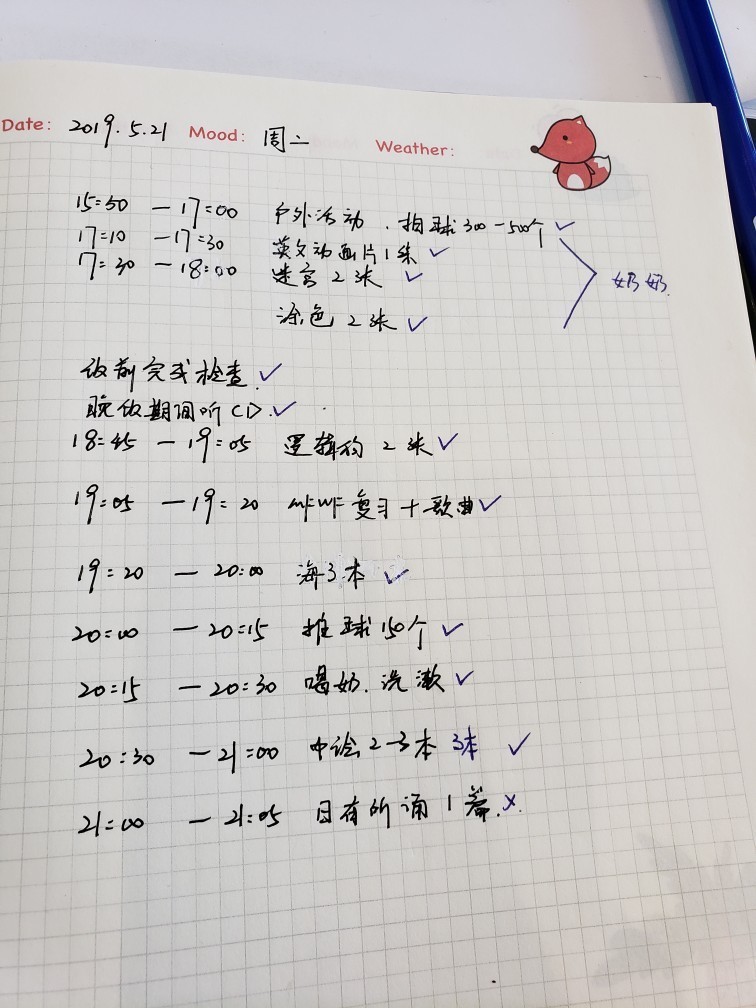 Date: 2019.5.21 Mood: 周二 Weather:
15:50 — 17:00 户外活动.拍球300-500个 ✓
17:10 — 17:30 英文动画片1集 ✓
17:30 — 18:00 迷宫2张 ✓
奶奶.
涂色2张 ✓
饭前完成检查 ✓
晚饭期间听CD. ✓
18:45 — 19:05 逻辑狗2张 ✓
19:05 — 19:20 MFWF复习+歌曲 ✓
19:20 — 20:00 海3本 ✓
20:00 — 20:15 推球150个 ✓
20:15 — 20:30 喝奶.洗漱 ✓
20:30 — 21:00 中绘2-3本 3本 ✓
21:00 — 21:05 日有所诵1篇. ×